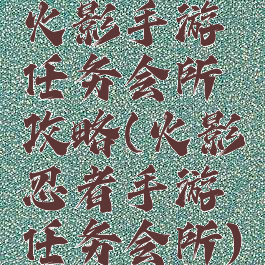 火影手游
任务会所
攻略(火影
忍者手游
任务会所)